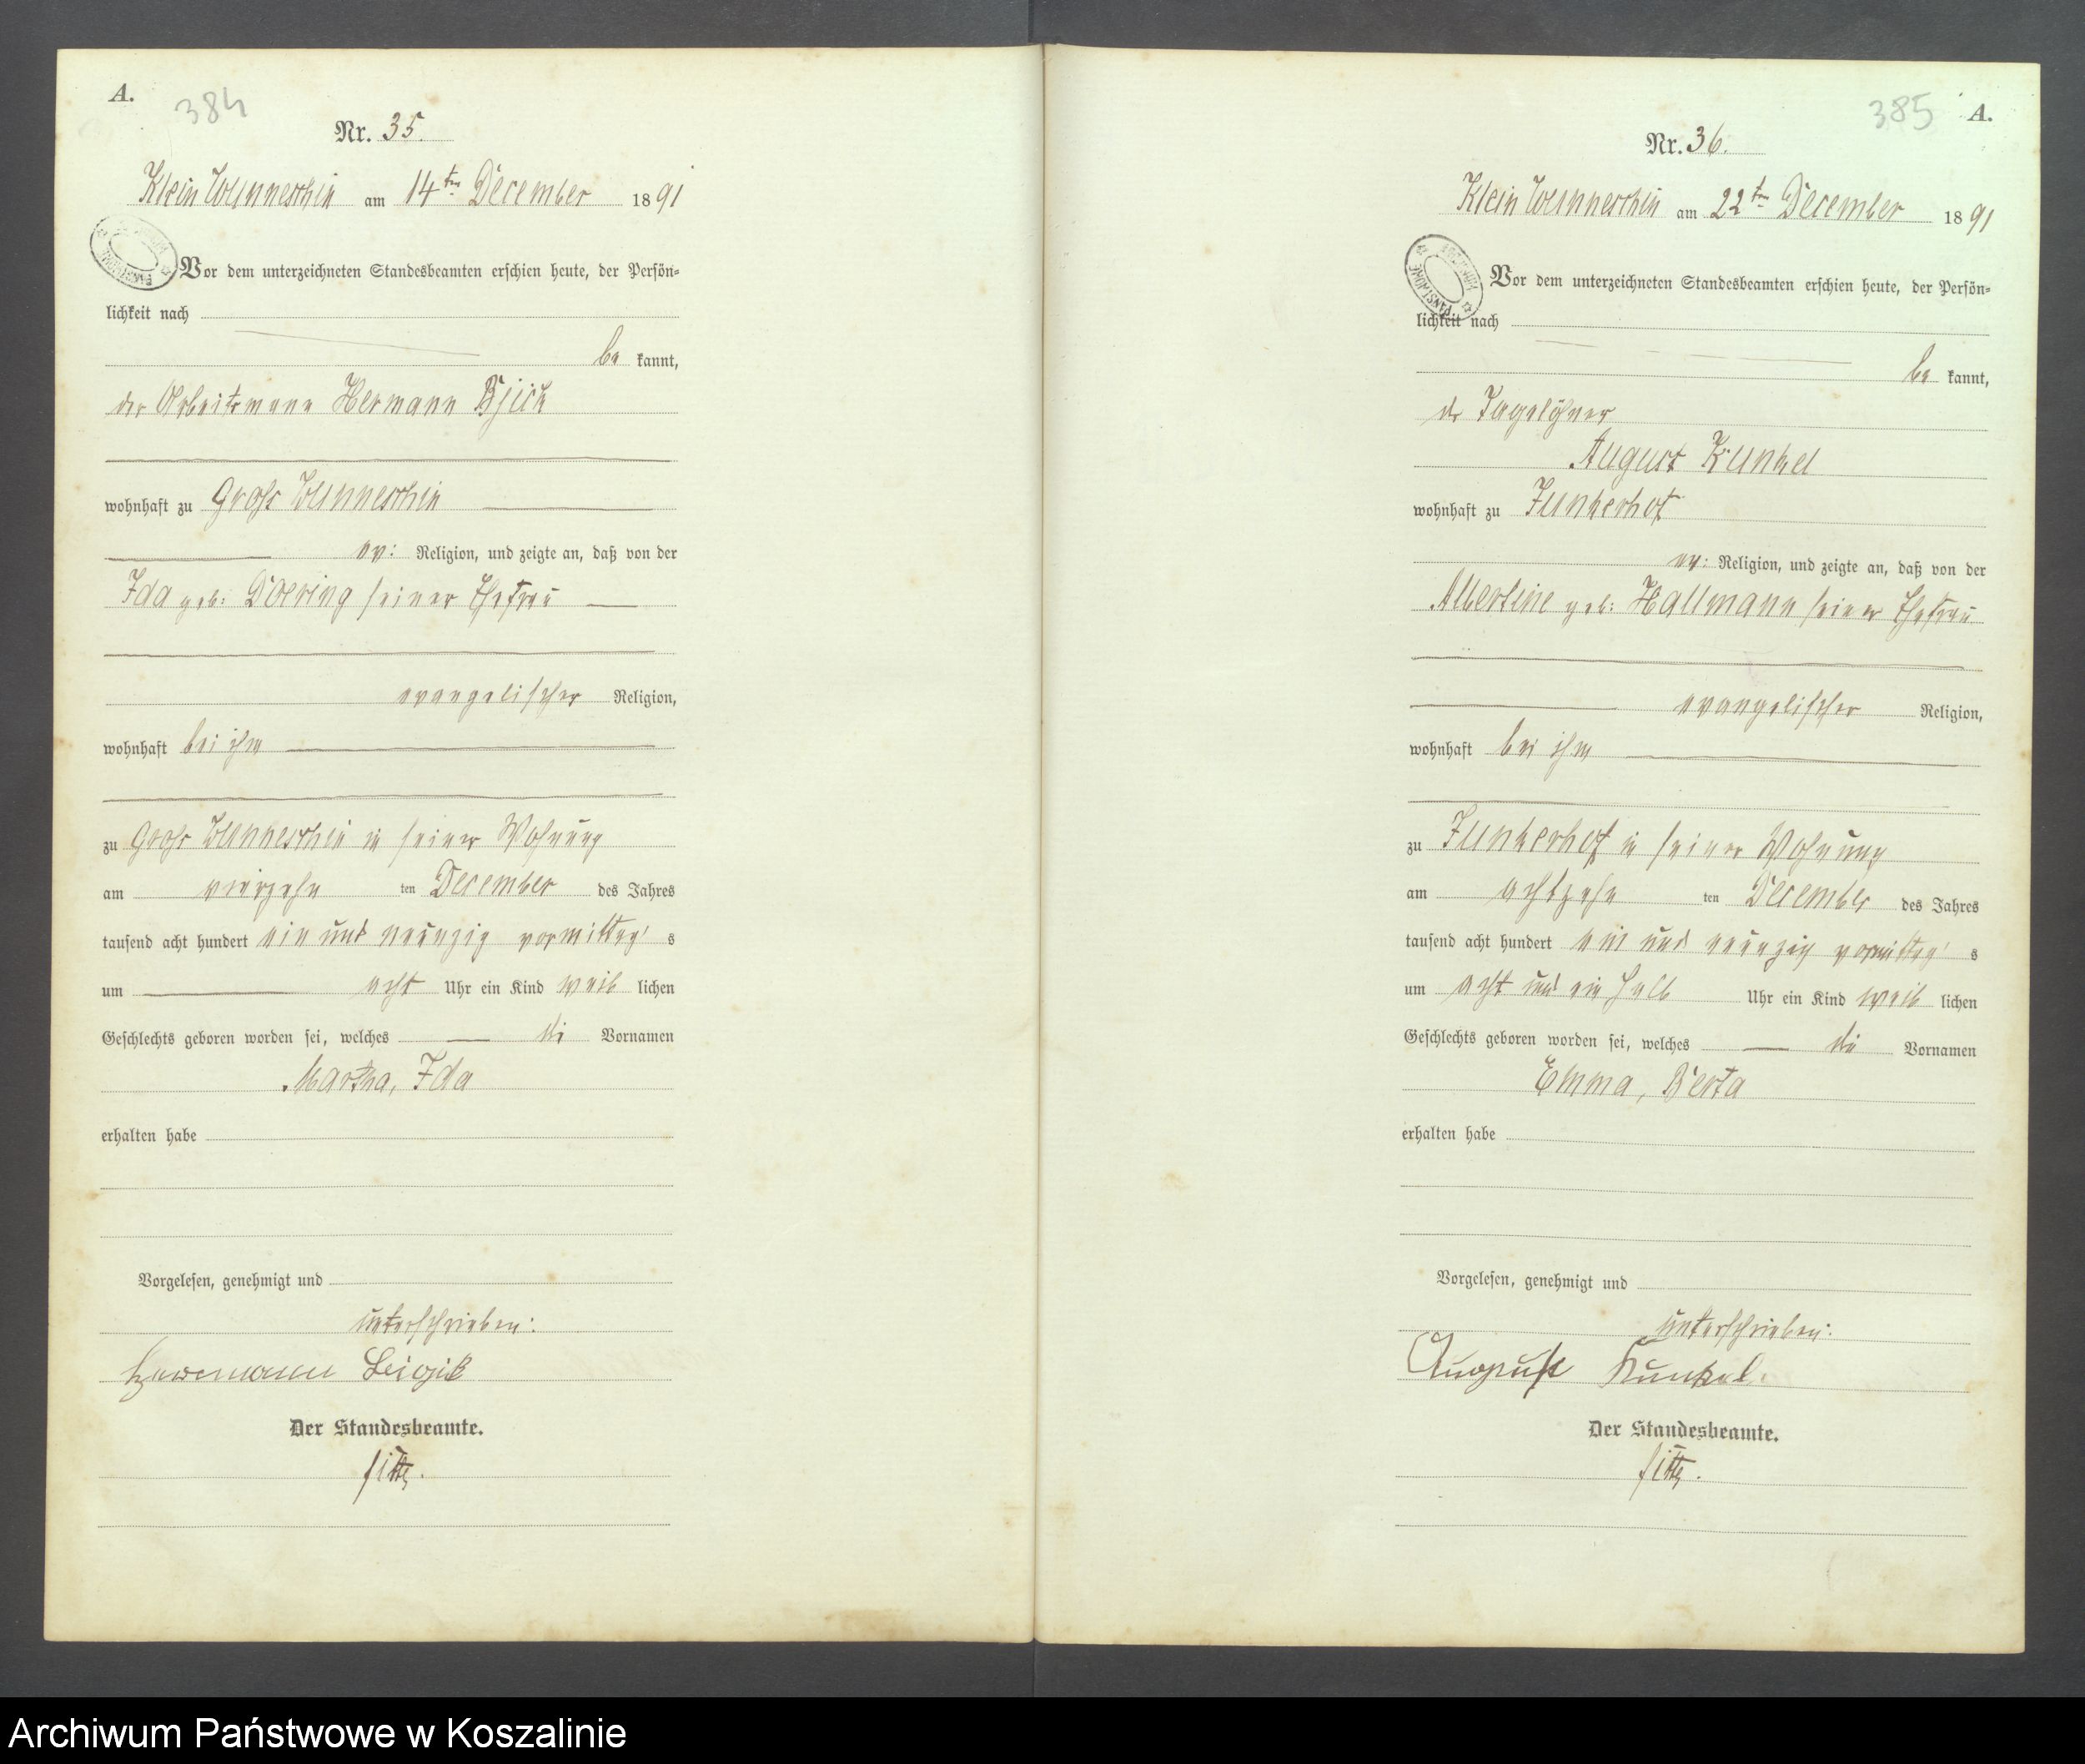 A.
384
Nr. 35.
Klein Wunneschin am 14ten December 1891
Vor dem unterzeichneten Standesbeamten erschien heute, der Persön-
lichkeit nach
be kannt,
der Arbeitsmann Hermann
wohnhaft zu Groß Wunneschin
ev: Religion, und zeigte an, daß von der
Ida geb: Doering seiner Ehefrau
evangelischer Religion,
wohnhaft bei ihm
zu Groß Wunneschin in seiner Wohnung
am vierzehn ten December des Jahres
tausend acht hundert ein und neunzig vormittag's
um acht Uhr ein Kind weib lichen
Geschlechts geboren worden sei, welches die Vornamen
Martha, Ida
erhalten habe
Vorgelesen, genehmigt und
unterschrieben:
Hermann
Der Standesbeamte.
385 A.
Nr. 36.
Klein Wunneschin am 22ten December 1891
Vor dem unterzeichneten Standesbeamten erschien heute, der Persön-
lichkeit nach
be kannt,
der Tagelöhner
August Kunkel
wohnhaft zu Junkerhof
ev: Religion, und zeigte an, daß von der
Albertine geb: Hallmann seiner Ehefrau
evangelischer Religion,
wohnhaft bei ihm
zu Junkerhof in seiner Wohnung
am achtzehn ten December des Jahres
tausend acht hundert ein und neunzig vormittag's
um acht und ein halb Uhr ein Kind weib lichen
Geschlechts geboren worden sei, welches die Vornamen
Emma, Berta
erhalten habe
Vorgelesen, genehmigt und
unterschrieben:
August Kunkel.
Der Standesbeamte.
Archiwum Państwowe w Koszalinie